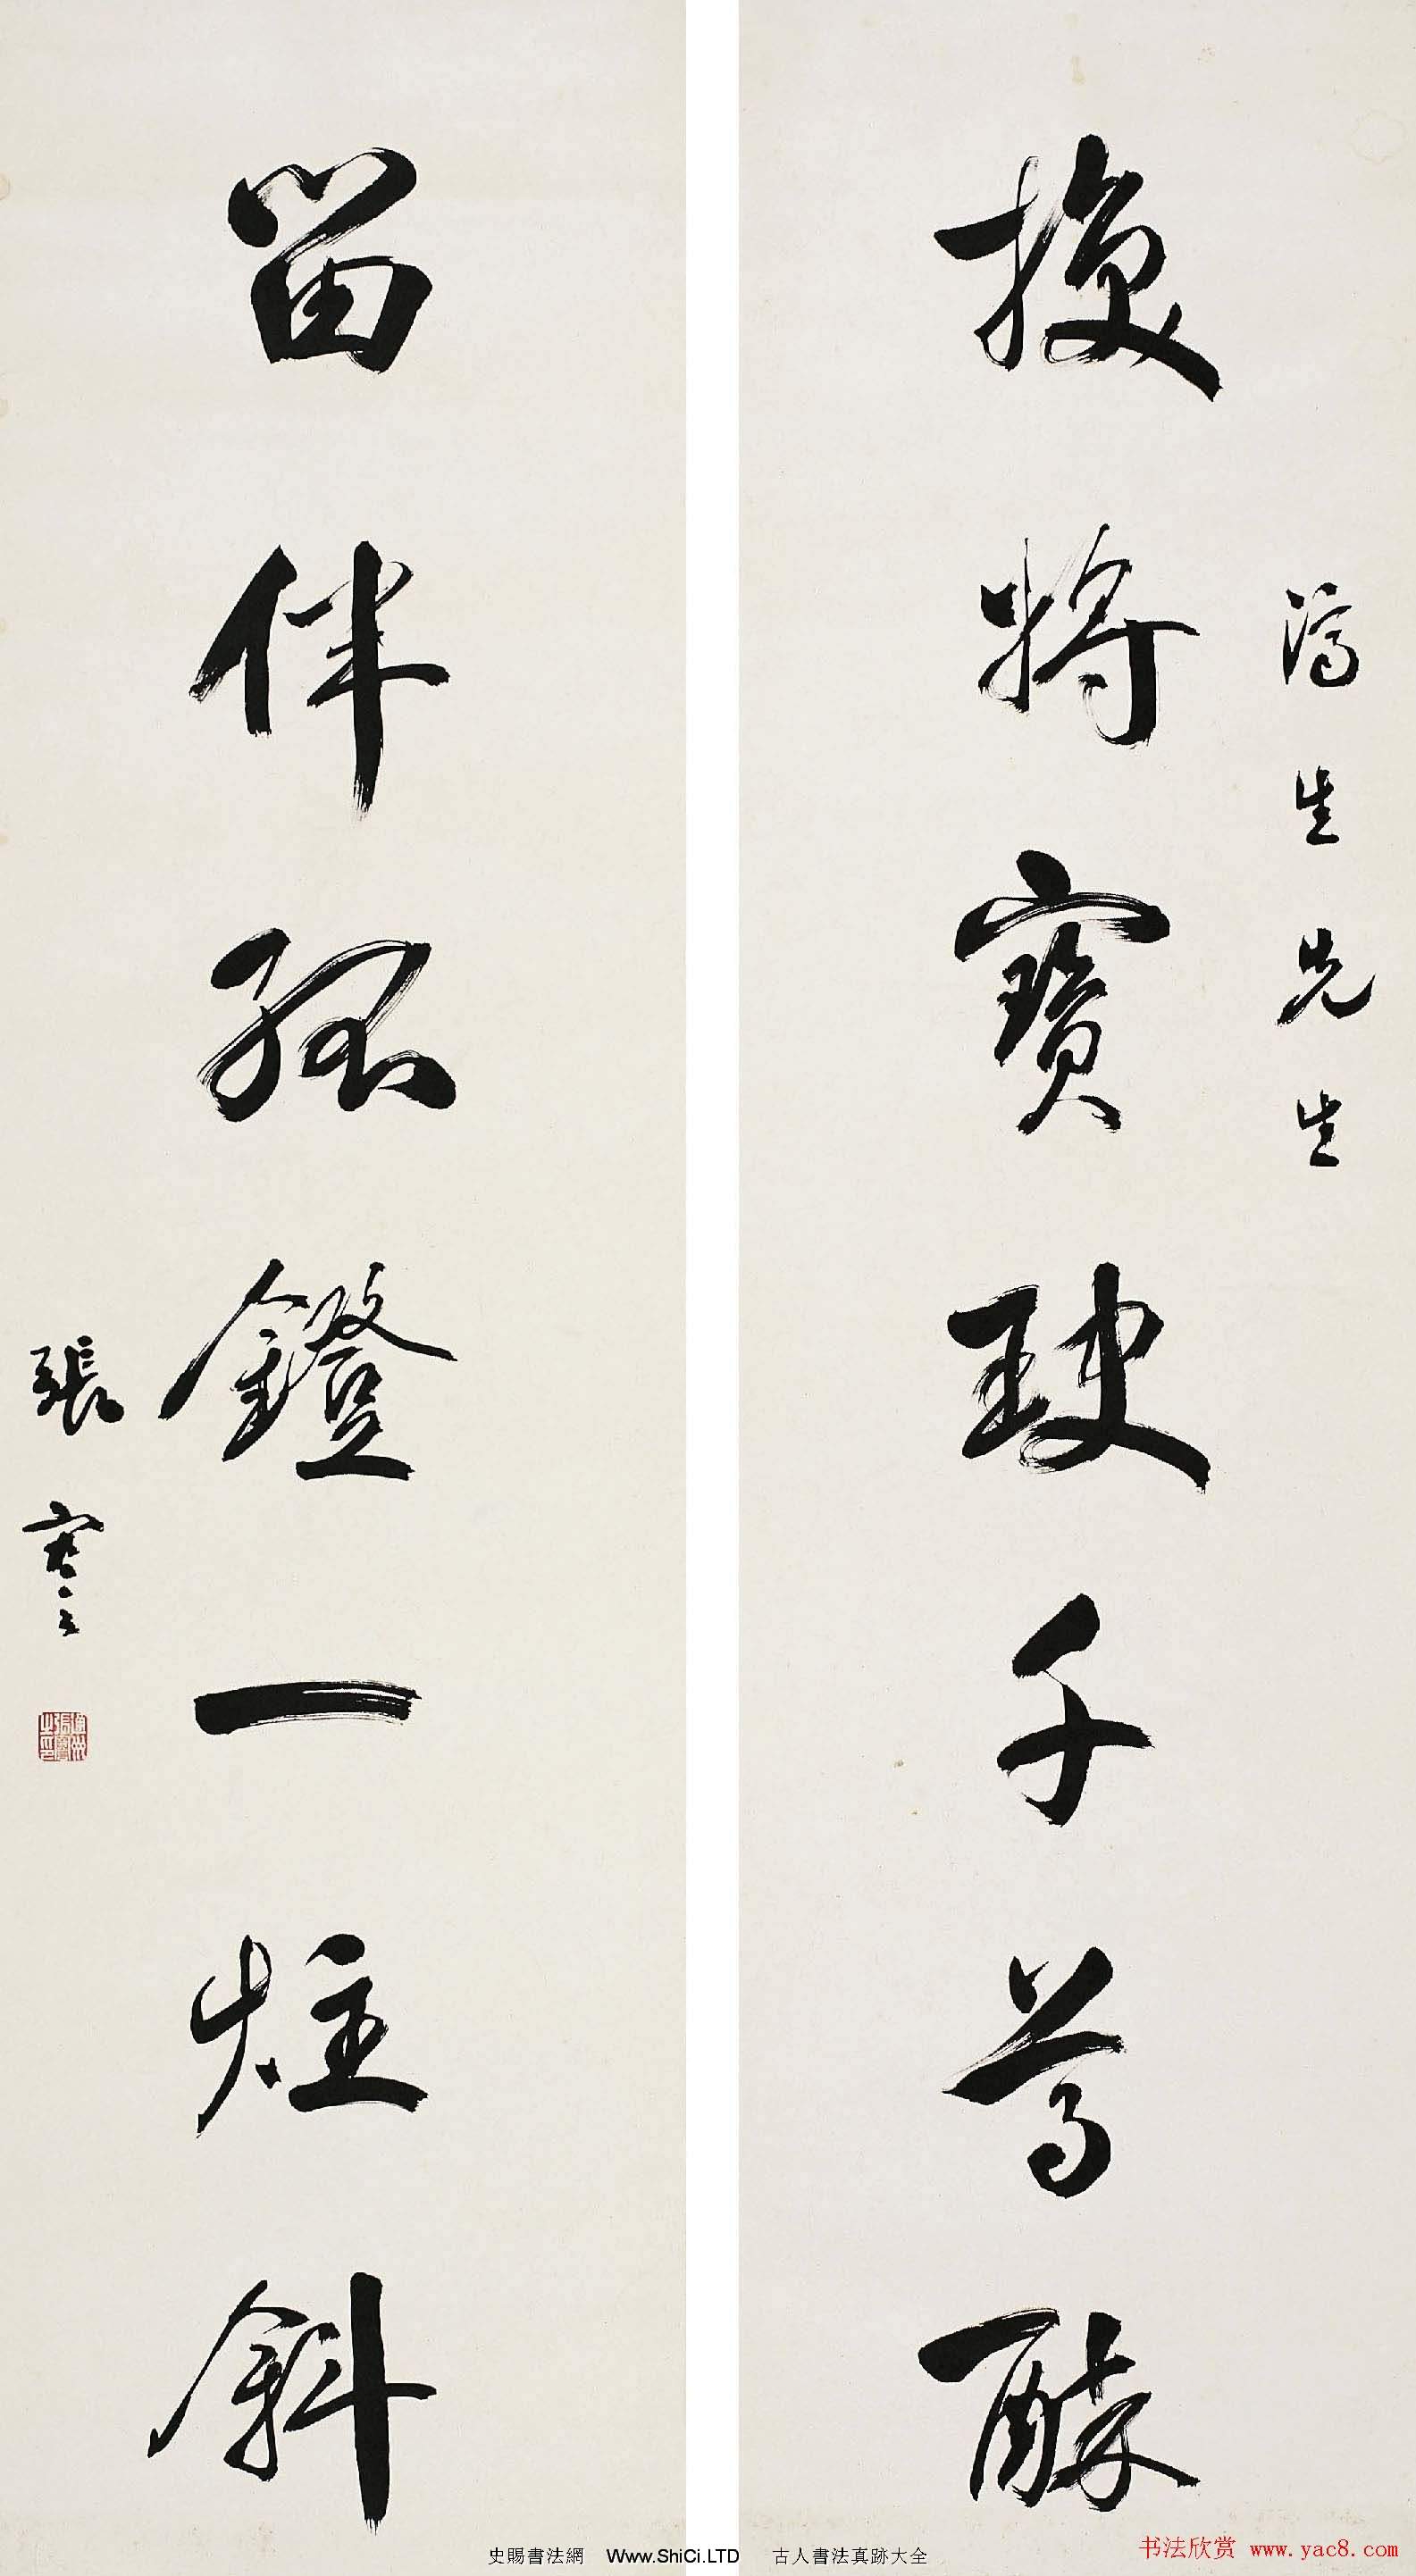 生先生
換將寶玦千尊醉
留伴孤鐙一炷斜
張謇
通州張謇之印
史賜書法網 Www.ShiCi.LTD 古人書法真跡大全
书法欣赏 www.yac8.com